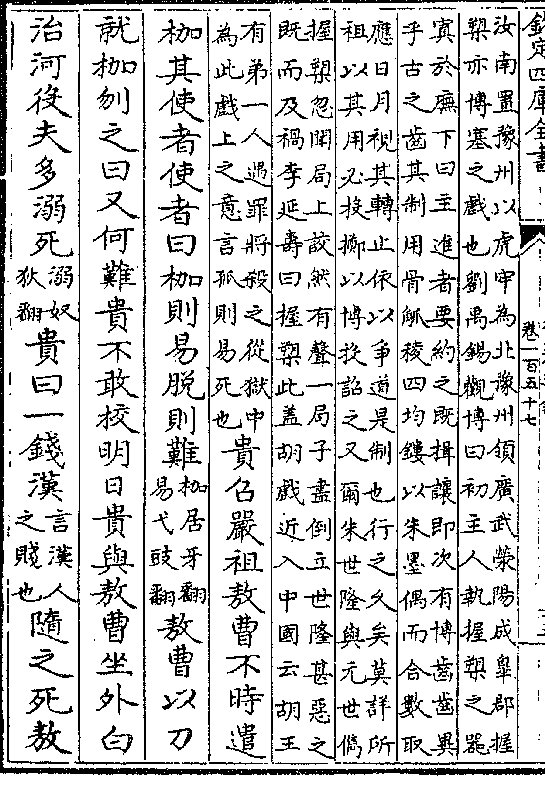 欽定四庫全書
卷一百五十七
汝南置豫州以虎牢為北豫州領廣武滎陽成臯郡握
槊亦博塞之戲也劉禹錫觀博曰初主人執握槊之器
寘於廡下曰主進者要約之既揖讓即次有博齒齒異
乎古之齒其制用骨觚稜四均鏤以朱墨偶而合數取
應日月視其轉止依以争道是制也行之久矣莫詳所
祖以其用必投擲以博投詔之又爾朱世隆與元世儁
握槊忽聞局上詨然有聲一局子盡倒立世隆甚惡之
既而及禍李延壽曰握槊此盖胡戲近入中國云胡王
有弟一人遇罪將殺之從獄中為此戲上之意言孤則易死也貴召嚴祖敖曹不時遣
枷其使者使者曰枷則易脱則難枷居牙翻易弋豉翻敖曹以刀
就枷刎之曰又何難貴不敢校明日貴與敖曹坐外白
治河役夫多溺死溺奴狄翻貴曰一錢漢言漢人之賤也隨之死敖